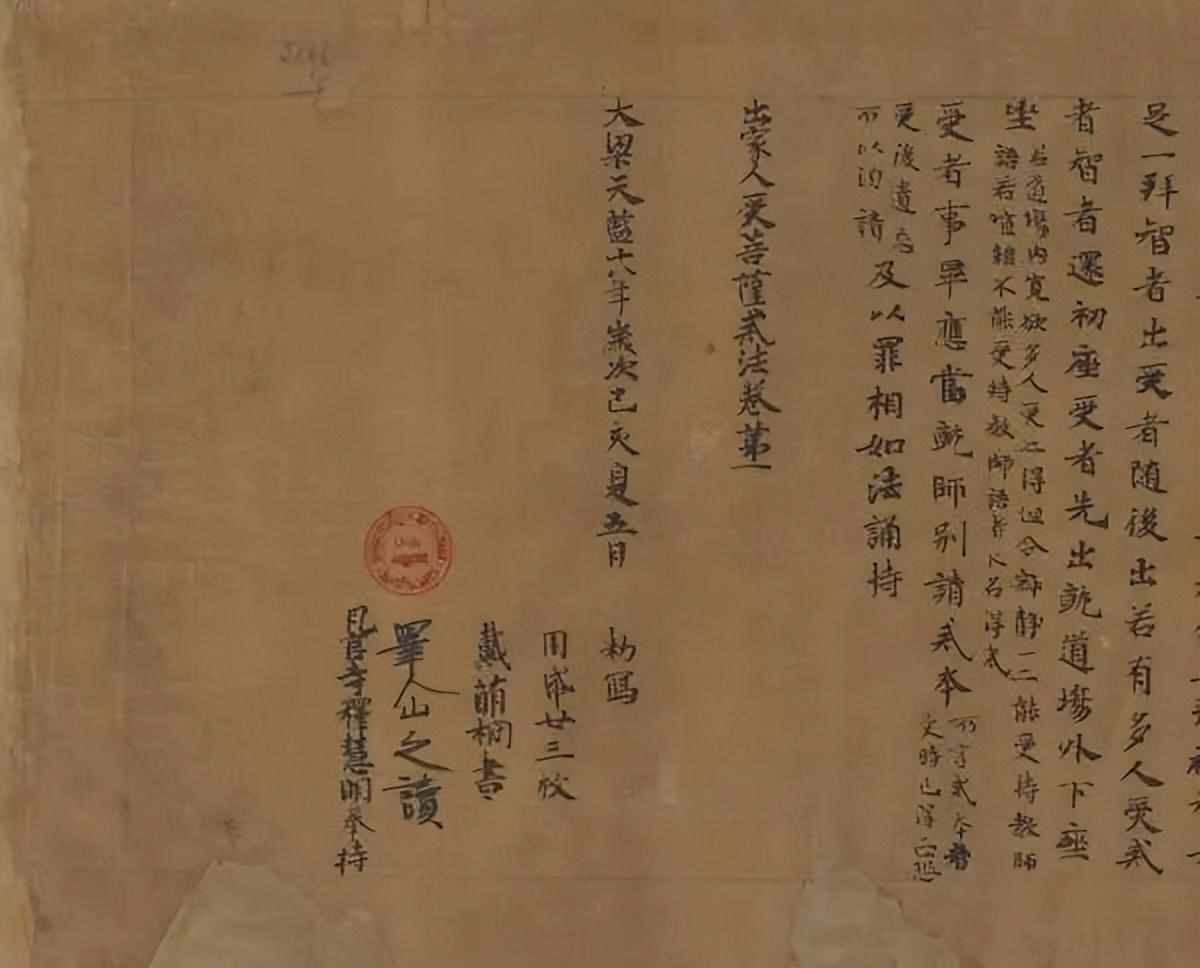 足一拜智者出受者随後出若有多人受戒
者智者還初座受者先出就道場外下座
坐
若道場内寬欲多人受亦得但令寂靜一一能受持教師
語若喧雜不能受持教師語者不名得戒
受者事畢應當就師別請戒本
所言戒本者
受時已得
受後遺忘
所以須請
及以罪相如法誦持
出家人受菩薩戒法卷第一
大梁天藍十八年歲次己亥夏五月 勑寫
用紙廿三枚
戴萌桐書
睪山之讀
瓦官寺釋慧明奉持